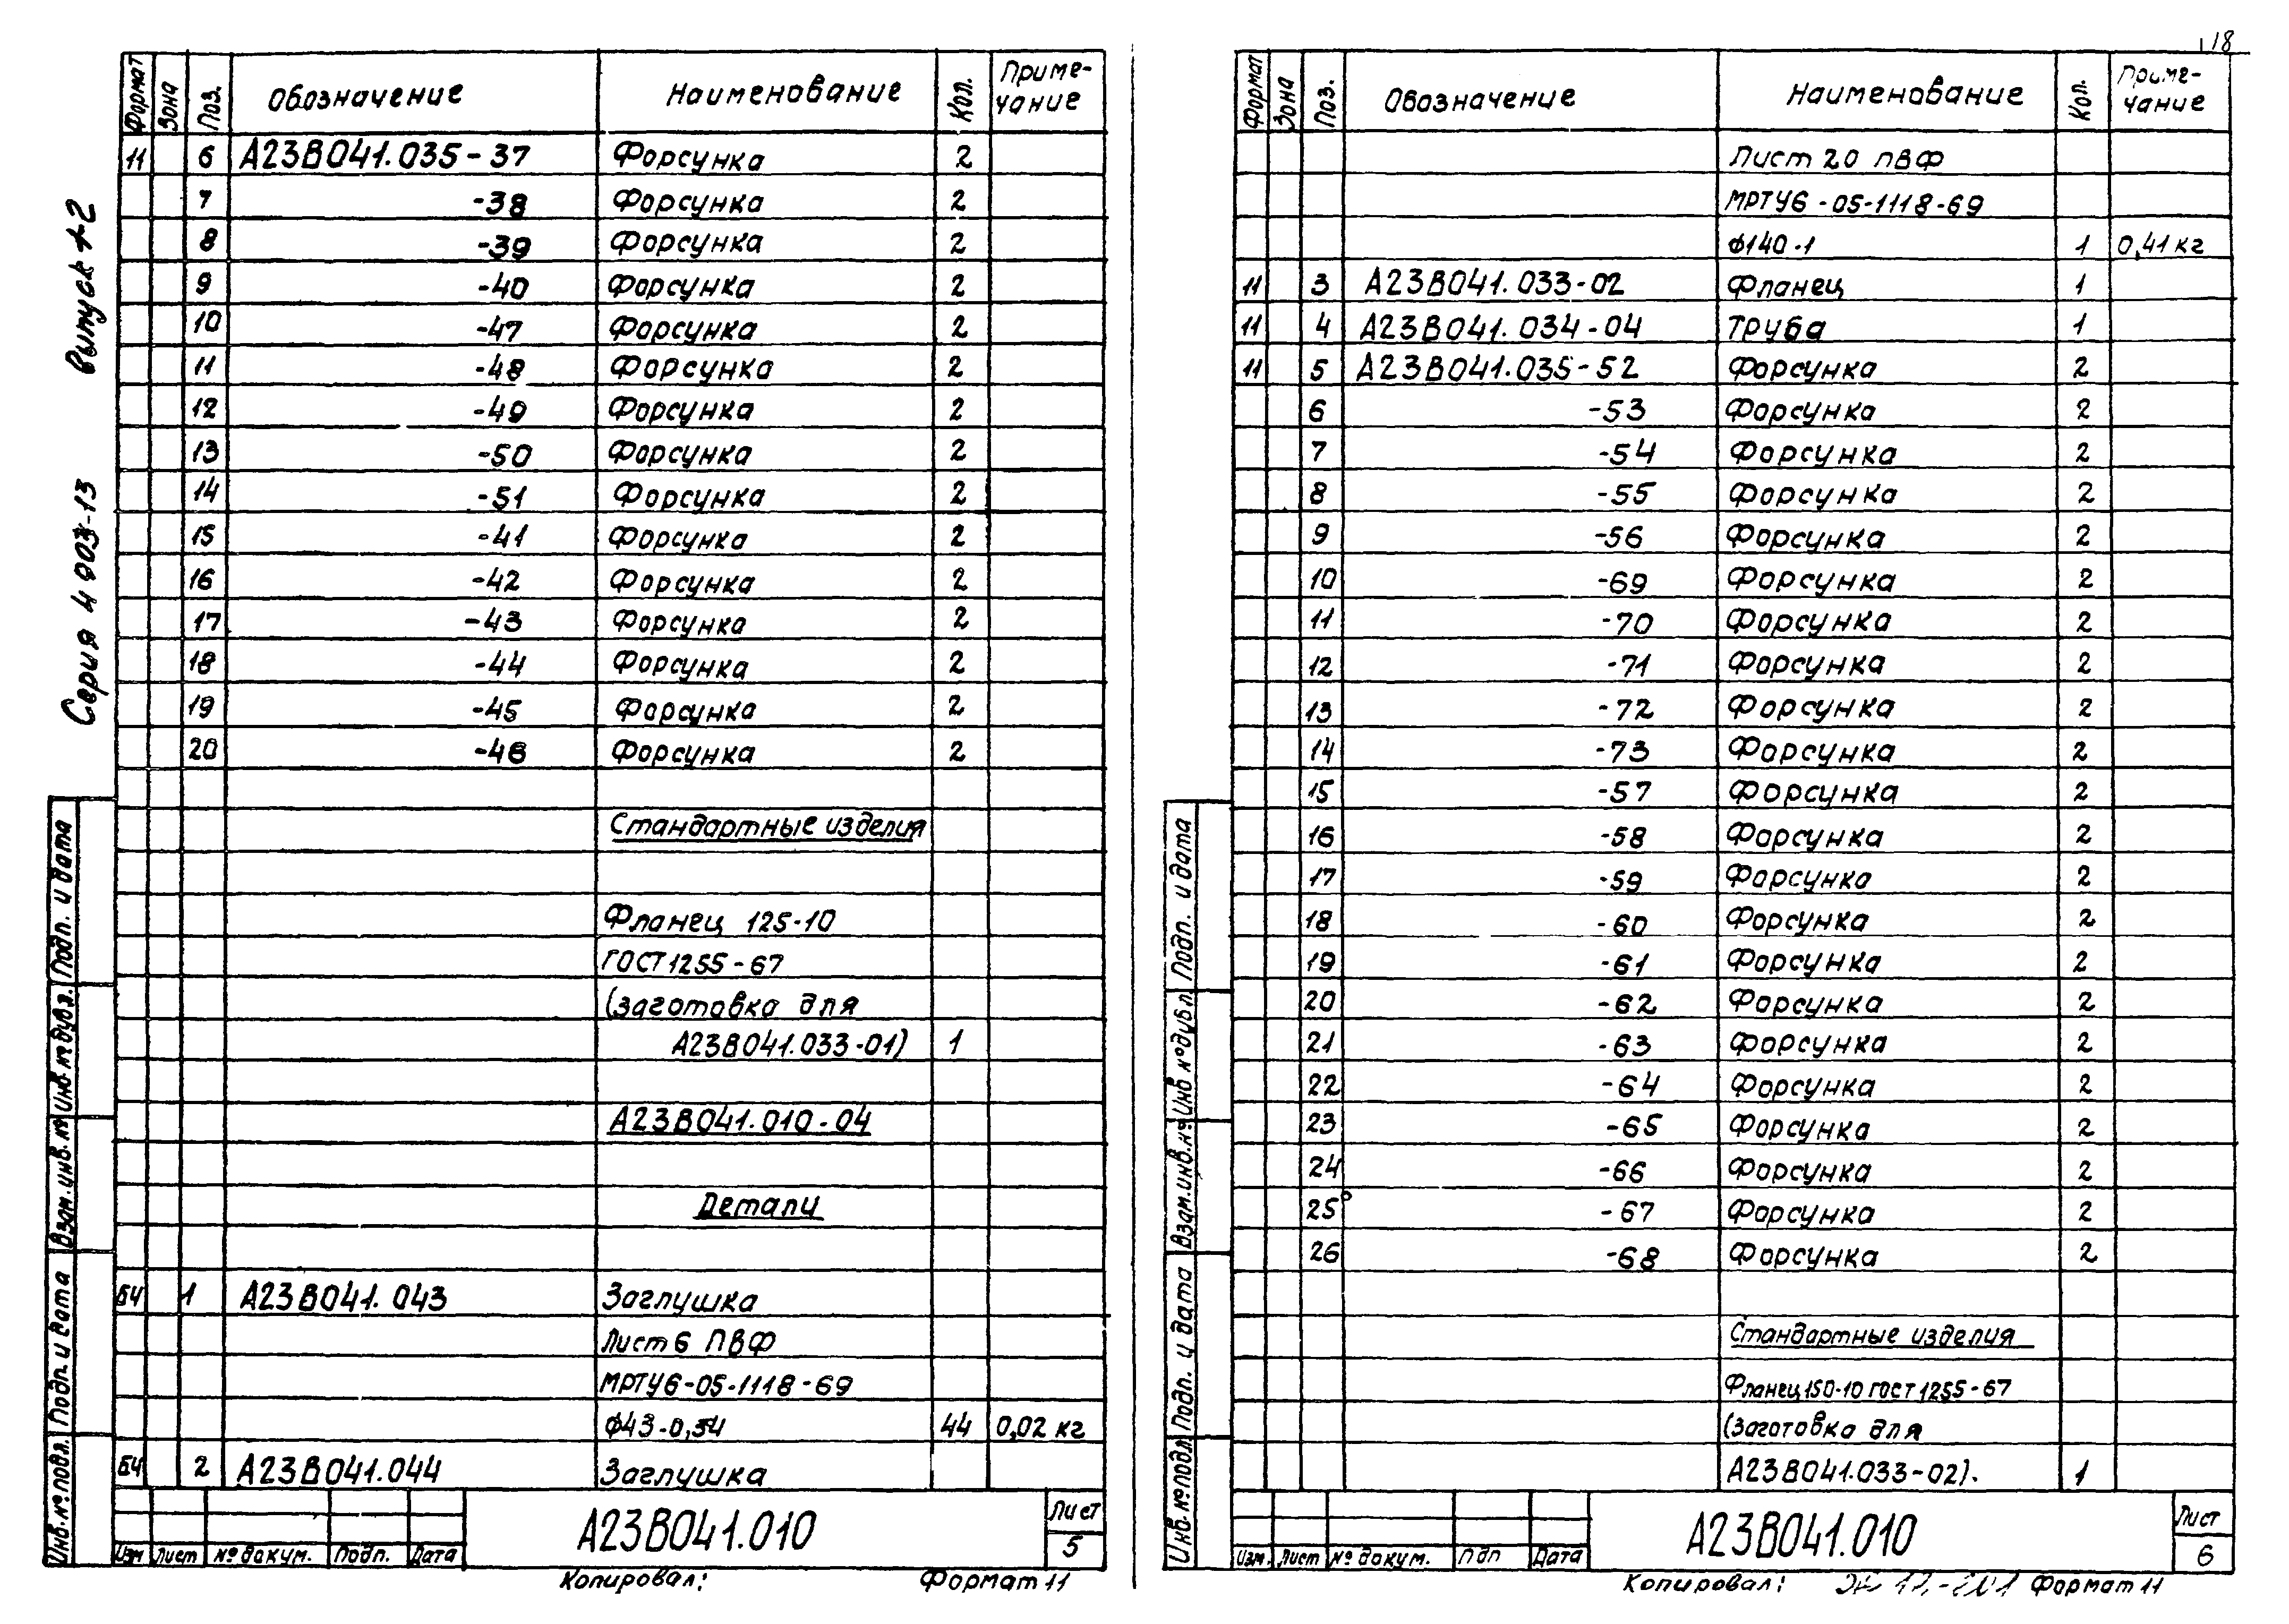 18
Серия 4 903-13 выпуск 1-2
Формат Зона Поз. Обозначение Наименование Кол. Приме-
чание
11 6 А23В041.035-37 Форсунка 2
7 -38 Форсунка 2
8 -39 Форсунка 2
9 -40 Форсунка 2
10 -47 Форсунка 2
11 -48 Форсунка 2
12 -49 Форсунка 2
13 -50 Форсунка 2
14 -51 Форсунка 2
15 -41 Форсунка 2
16 -42 Форсунка 2
17 -43 Форсунка 2
18 -44 Форсунка 2
19 -45 Форсунка 2
20 -46 Форсунка 2
Стандартные изделия
Фланец 125-10
ГОСТ 1255-67
(заготовка для
А23В041.033-01) 1
А23В041.010-04
Детали
БЧ 1 А23В041.043 Заглушка
Лист 6 ПВФ
МРТУ6-05-1118-69
ф43-0,34 44 0,02 кг
БЧ 2 А23В041.044 Заглушка
Инв.№подл. Подп. и дата Взам.инв.№ Инв №дубл. Подп. и дата
Изм Лист № докум. Подп. Дата
А23В041.010
Лист
5
Копировал: Формат 11
Формат Зона Поз. Обозначение Наименование Кол. Приме-
чание
Лист 20 ПВФ
МРТУ6-05-1118-69
ф140-1 1 0,41 кг
11 3 А23В041.033-02 Фланец 1
11 4 А23В041.034-04 Труба 1
11 5 А23В041.035-52 Форсунка 2
6 -53 Форсунка 2
7 -54 Форсунка 2
8 -55 Форсунка 2
9 -56 Форсунка 2
10 -69 Форсунка 2
11 -70 Форсунка 2
12 -71 Форсунка 2
13 -72 Форсунка 2
14 -73 Форсунка 2
15 -57 Форсунка 2
16 -58 Форсунка 2
17 -59 Форсунка 2
18 -60 Форсунка 2
19 -61 Форсунка 2
20 -62 Форсунка 2
21 -63 Форсунка 2
22 -64 Форсунка 2
23 -65 Форсунка 2
24 -66 Форсунка 2
25 -67 Форсунка 2
26 -68 Форсунка 2
Стандартные изделия
Фланец 150-10 ГОСТ 1255-67
(Заготовка для
А23В041.033-02). 1
Инв.№подл Подп. и дата Взам.инв.№ Инв №дубл Подп. и дата
Изм. Лист № докум. Пдп Дата
А23В041.010
Лист
6
Копировал: Формат 11